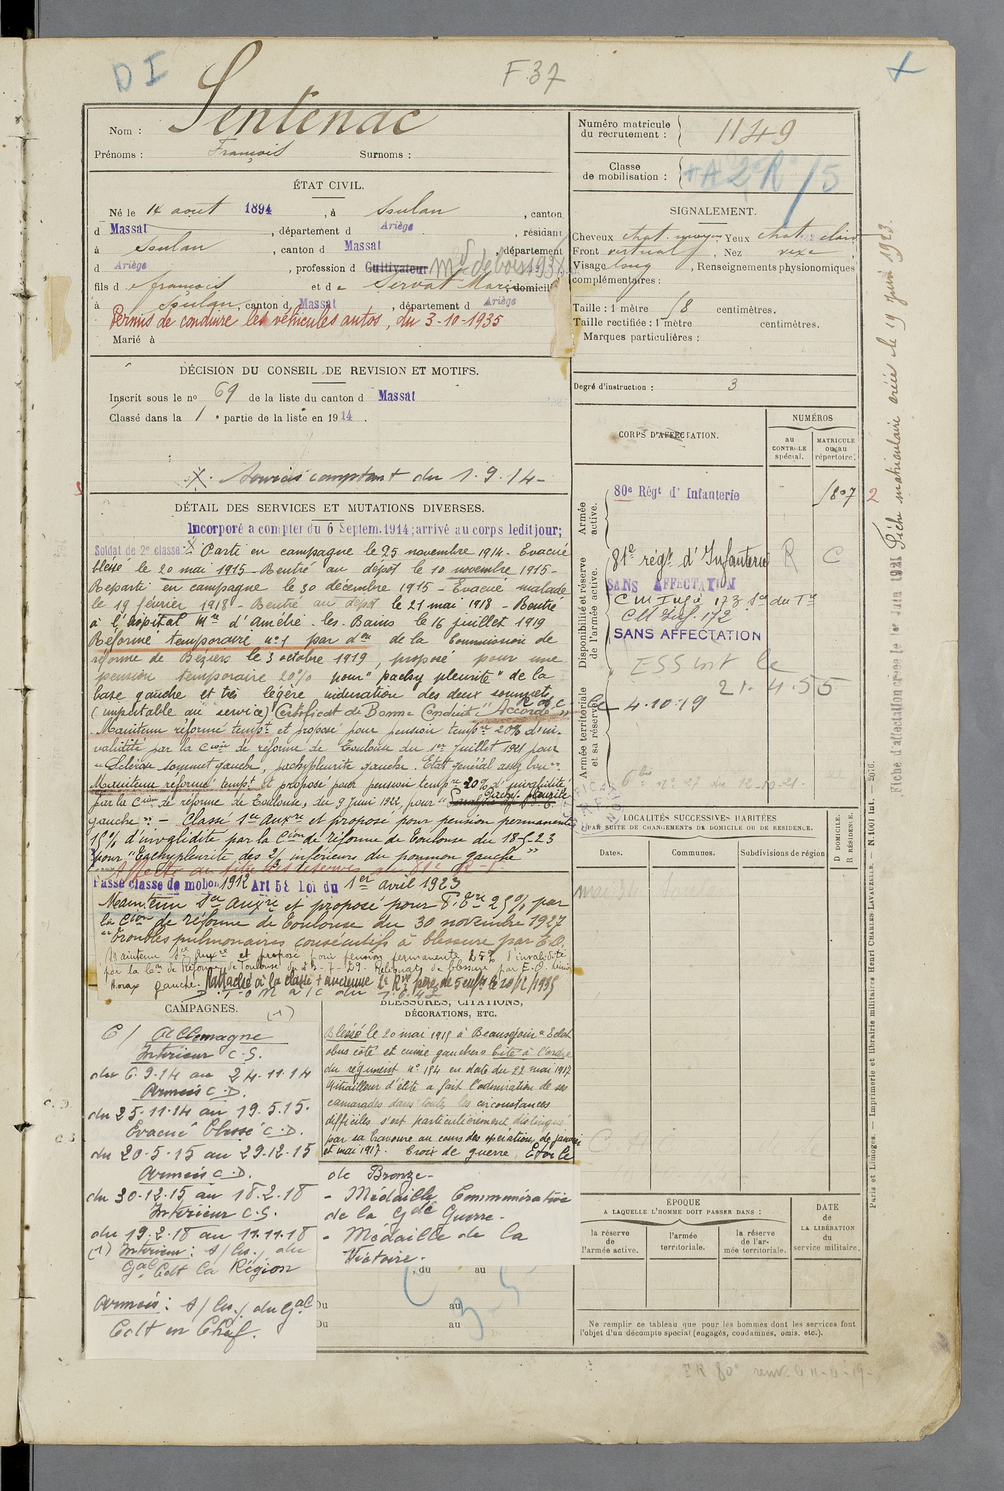 D I
F 37
Nom : Sentenac
Prénoms : François Surnoms :
ÉTAT CIVIL.
Né le 14 aout 1894, à Soulan, canton
d Massat, département d Ariège, résidant
à Soulan, canton d Massat, département
d Ariège, profession d Cultivateur Md de bois 193
fils d François et d e Servat Marie domicilié
à Soulan, canton d Massat, département d Ariège
Permis de conduire les véhicules autos, du 3-10-1935
Marié à
DÉCISION DU CONSEIL DE REVISION ET MOTIFS.
Inscrit sous le no 69 de la liste du canton d Massat
Classé dans la 1 e partie de la liste en 1914.
X. Services comptant du 1.9.14-
DÉTAIL DES SERVICES ET MUTATIONS DIVERSES.
Incorporé a compter du 6 Septem. 1914; arrivé au corps ledit jour;
Soldat de 2e classe. X Parti en campagne le 25 novembre 1914- Evacué
blessé le 20 mai 1915- Rentré au dépot le 10 novembre 1915-
Reparti en campagne le 30 décembre 1915- Evacué malade
le 19 février 1918- Rentré au dépôt le 21 mai 1918- Rentré
à l'hôpital Mre d'Amélie-les-Bains le 16 juillet 1919
Réformé temporaire no 1 par don de la Commission de
réforme de Béziers le 3 octobre 1919, proposé pour une
pension temporaire 20% pour "pachy pleurite" de la
base gauche et très légère induration des deux sommets
(imputable au service) Certificat de Bonne Conduite "Accordé"
Maintenu réformé tempre et proposé pour pension tempre 20% d'in-
validité par la Cion de réforme de Toulouse du 1er Juillet 1921 pour
"Sclérose sommet gauche, pachypleurite gauche. Etat général assez bon".
Maintenu réformé tempre et proposé pour pension tempre 20% d'invalidité
par la Cion de réforme de Toulouse, du 9 Juin 1922, pour "Pachy-pleurite
gauche" - Classé 1er auxre et proposé pour pension permanente
15% d'invalidité par la Cion de réforme de Toulouse du 18-5-23
pour "Pachypleurite des 2/3 inférieurs du poumon gauche"
Passé classe de mobon 1912 Art 58 loi du 1er avril 1923
Maintenu Ser Auxre et proposé pour P. Pre 25% par
la Cion de réforme de Toulouse du 30 novembre 1927
"Troubles pulmonaires consécutifs à blessure par E.O.
Maintenu Ser Auxre et proposé pour pension permanente 25% d'invalidité
par la Con de Réforme de Toulouse du 23-7-29. Reliquats de blessure par E.O.
thorax gauche. Rattaché à la classe + ancienne 2e Rve père de 5 enfts le 20/12/1935
CAMPAGNES. (1)
C/ Allemagne
Intérieur C.S.
du 6.9.14 au 24.11.14
Armées C.D.
du 25.11.14 au 19.5.15.
Evacué blessé C.D.
du 20-5-15 au 29.12.15
Armées C.D.
du 30-12.15 au 18.2.18
Intérieur C.S.
du 19.2.18 au 11.11.18
(1) Intérieur : s/ les/ du
Gal Cdt la Région
Armées : s/ les/ du Gal
Cdt en Chef.
BLESSURES, CITATIONS,
DÉCORATIONS, ETC.
Blessé le 20 mai 1915 à Beauséjour "Eclat
obus côté et cuisse gauches". Cité à l'ordre
du régiment no 184 en date du 22 mai 1917
Grenadier d'élite a fait l'admiration de ses
camarades dans toutes les circonstances
difficiles s'est particulièrement distingué
par sa bravoure au cours des opérations de janvier
et mai 1917. Croix de guerre, Etoile
de Bronze-
- Médaille Commémorative
de la Gde Guerre-
- Médaille de la
Victoire.
, du au
Du au
Du au
Numéro matricule du recrutement : 1149
Classe de mobilisation :
SIGNALEMENT.
Cheveux chat. moyen. Yeux chat. clair
Front vertical, Nez vexe
Visage long, Renseignements physionomiques
complémentaires :
Taille : 1 mètre 78 centimètres.
Taille rectifiée : 1 mètre centimètres.
Marques particulières :
Degré d'instruction : 3
CORPS D'AFFECTATION.
NUMÉROS
au CONTROLE spécial.
MATRICULE ou au répertoire.
Armée active.
80e Régt d'Infanterie 1807 2
Disponibilité et réserve de l'armée active.
81e régt d'Infanterie R C
SANS AFFECTATION
C M Infie 173
C M Inf. 172
SANS AFFECTATION
Armée territoriale et sa réserve
ESS Int le
21.4.55
R d C le 4.10.19
6 bis no 27 du 12-10-21
LOCALITÉS SUCCESSIVES HABITÉES
PAR SUITE DE CHANGEMENTS DE DOMICILE OU DE RÉSIDENCE.
Dates. Communes. Subdivisions de région
D. DOMICILE.
R. RÉSIDENCE.
ÉPOQUE
A LAQUELLE L'HOMME DOIT PASSER DANS :
la réserve de l'armée active.
l'armée territoriale.
la réserve de l'armée territoriale.
DATE de LA LIBÉRATION du service militaire.
Ne remplir ce tableau que pour les hommes dont les services font
l'objet d'un décompte spécial (engagés, condamnés, omis, etc.).
Fiche d'affectation créée le 1er Juin 1921 Fiche matriculaire créée le 19 juin 1923.
Paris et Limoges. — Imprimerie et librairie militaires Henri CHARLES-LAVAUZELLE. — N. 1601 Int. — 2076.